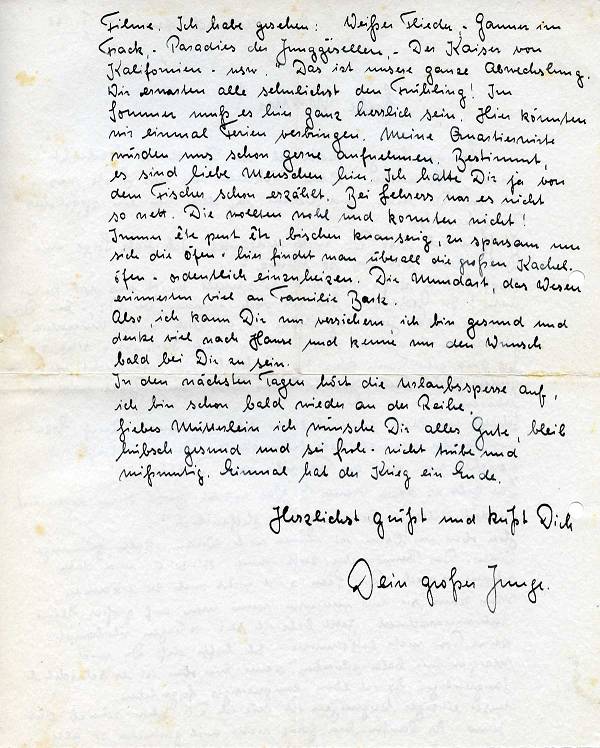 Filme. Ich habe gesehen: Weißer Flieder, - Gauner im
Frack. - Paradies der Junggesellen, - Der Kaiser von
Kalifornien - usw." Das ist unsere ganze Abwechslung.
Wir erwarten alle sehnlichst den Frühling! Im
Sommer muß es hier ganz herrlich sein. Hier könnten
wir einmal Ferien verbringen. Meine Quartierwirte
würden uns schon gerne aufnehmen. Bestimmt,
es sind liebe Menschen hier. Ich hatte Dir ja von
dem Fischer schon erzählt. Bei Lehrers war es nicht
so nett. Die wollten wohl und konnten nicht!
Immer ête pet ête, bischen knauserig, zu sparsam um
sich die Öfen - hier findet man überall die großen Kachel-
öfen - ordentlich einzuheizen. Die Mundart, das Wesen
erinnerten viel an Familie Bartz.
Also, ich kann Dir nur versichern, ich bin gesund und
denke viel nach Hause und kenne nur den Wunsch
bald bei Dir zu sein.
In den nächsten Tagen hört die Urlaubssperre auf,
ich bin schon bald wieder an der Reihe.
Liebes Mütterlein ich wünsche Dir alles Gute, bleib
hübsch gesund und sei froh - nicht trübe und
mißmutig. Einmal hat der Krieg ein Ende.
Herzlichst grüßt und küßt Dich
Dein großer Junge.